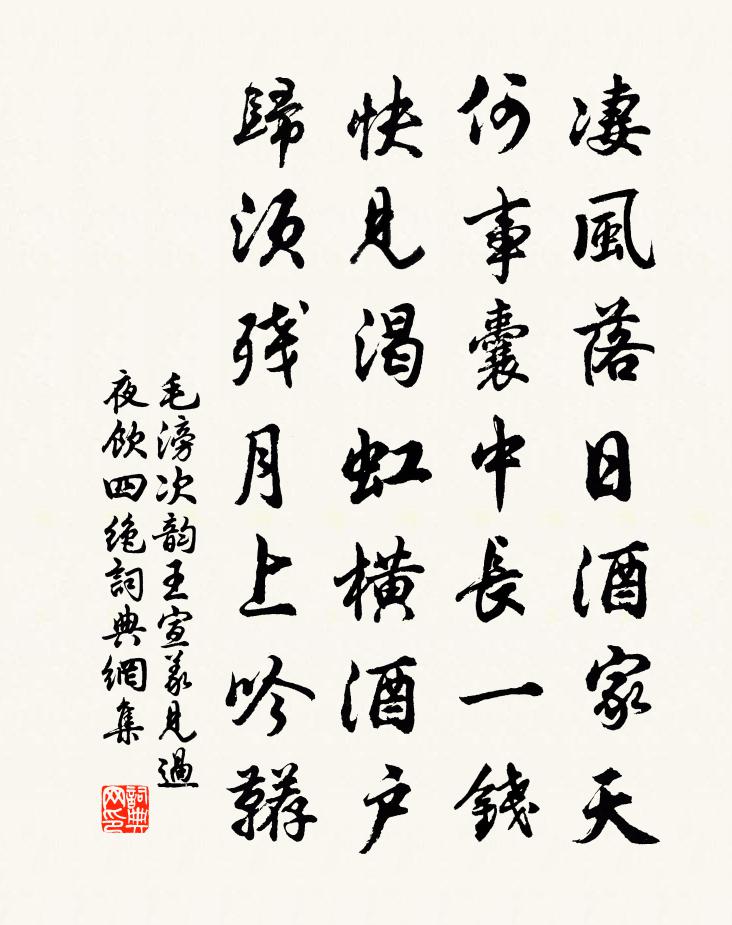 凄風落日酒家天
何事囊中長一錢
快見渴虹橫酒户
歸須残月上吟韉
毛滂次韵王宣義見過
夜飲四絶詞典網集
詞典网印